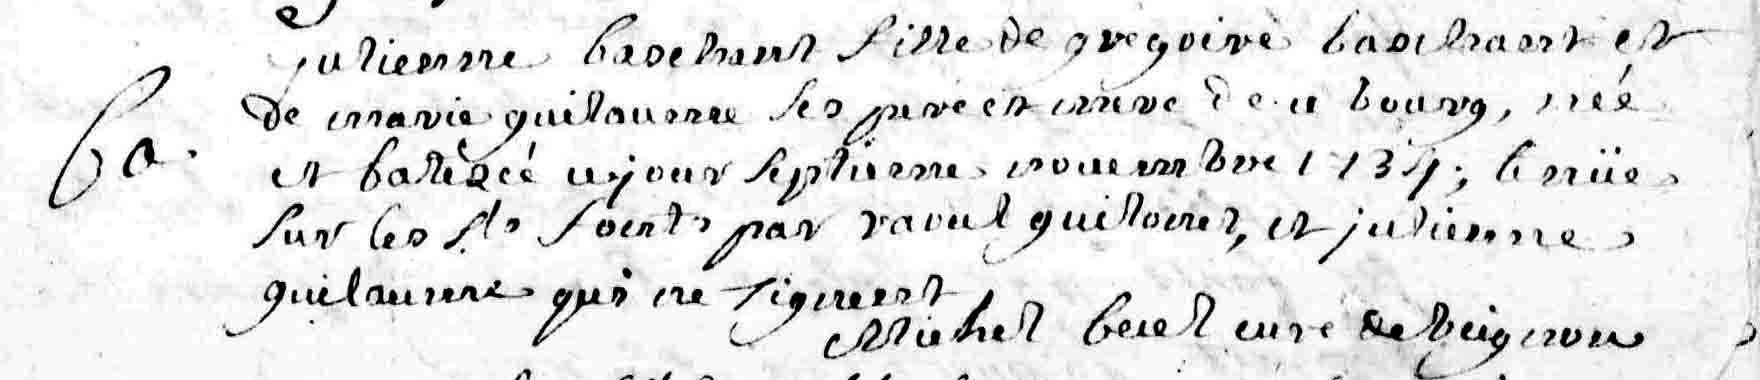 julienne baschant fille de gregoire baschant et
de marie guilaume ses pere et mere de ce bourg, née
60.
et batiséé ce jour septieme nouembre 1734; tenüe
sur les sts fonts par raoul guiloret, et julienne
guilaume qui ne signent
Michel curé de beignon